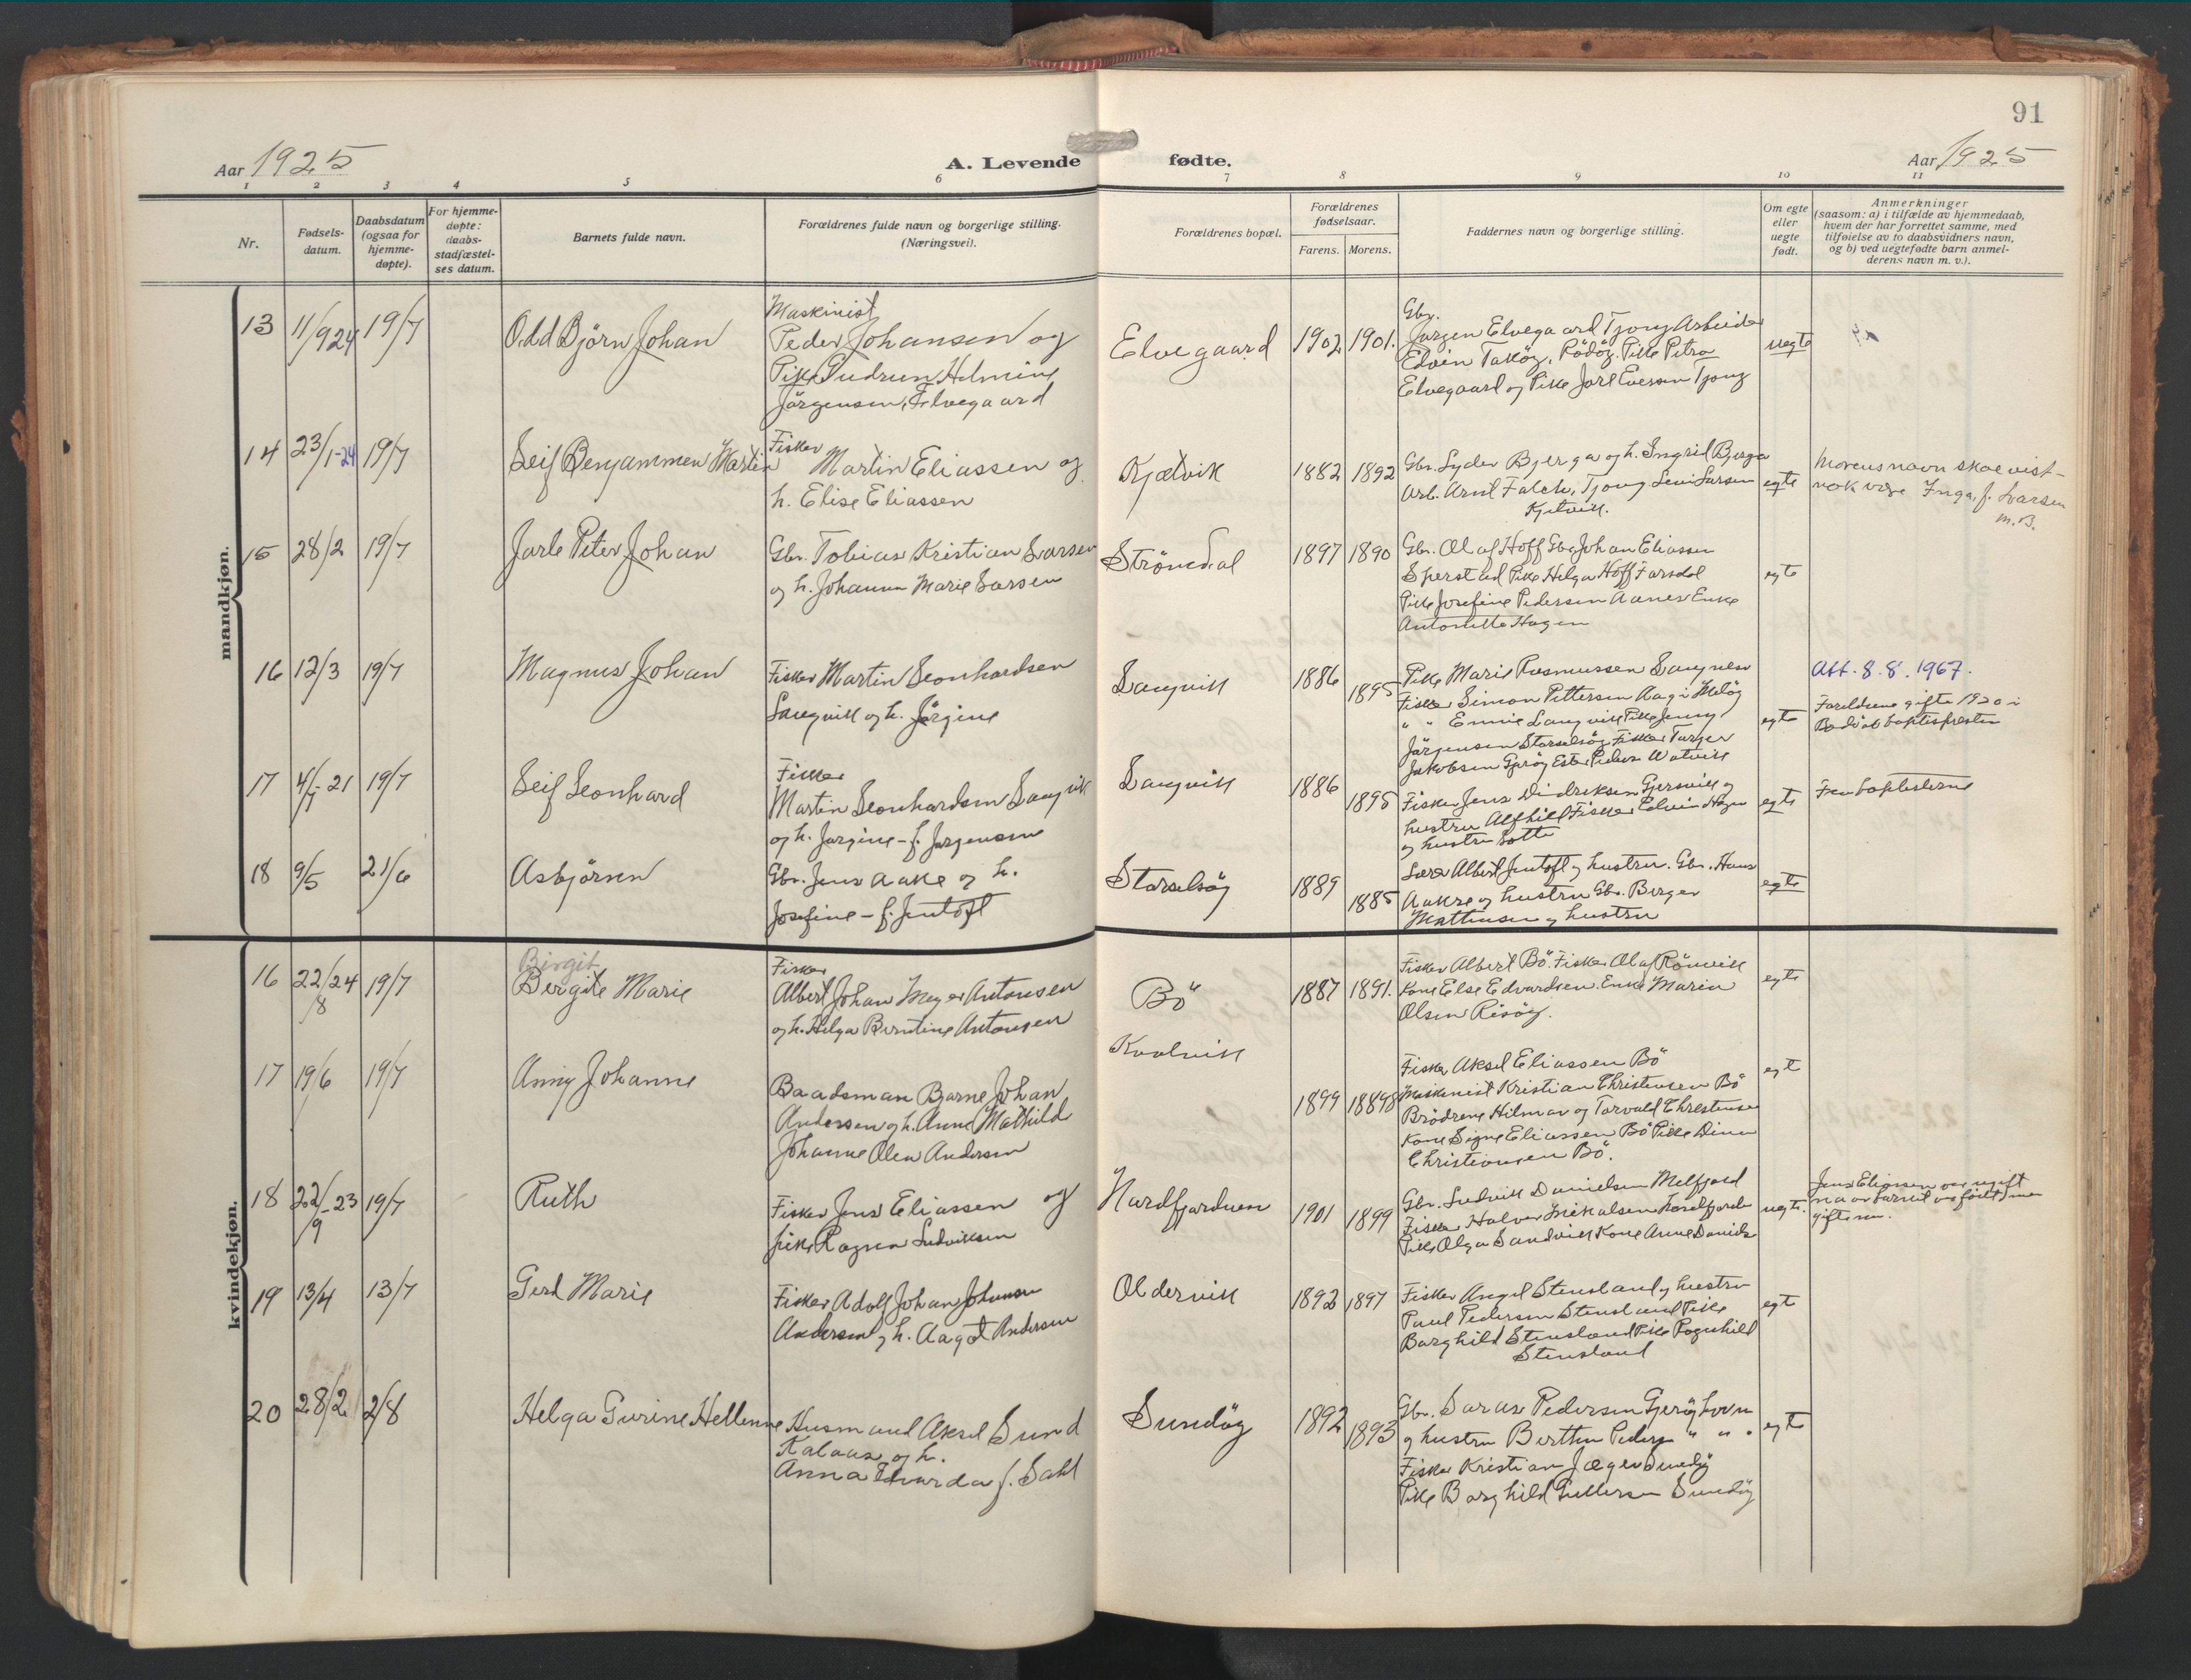 91
Aar 1925
A. Levende
fødte.
Aar 1925
1 2 3 4 5 6 7 8 9 10 11
Nr.
Fødsels-
datum.
Daabsdatum
(ogsaa for
hjemme-
døpte).
For hjemme-
døpte:
daabs-
stadfæstel-
ses datum.
Barnets fulde navn.
Forældrenes fulde navn og borgerlige stilling.
(Næringsvei).
Forældrenes bopæl.
Forældrenes
fødselsaar.
Farens. Morens.
Faddernes navn og borgerlige stilling.
Om egte
eller
uegte
født.
Anmerkninger
(saasom: a) i tilfælde av hjemmedaab,
hvem der har forrettet samme, med
tilføielse av to daabsvidners navn,
og b) ved uegtefødte barn anmel-
derens navn m. v.).
mandkjøn.
13 11/9 24 19/7 Odd Bjørn Johan
Maskinist
Peder Johansen og
Pike Gudrun Helmine
Jörgensen, Elvegaard
Elvegaard 1902 1901.
Gbr.
Jørgen Elvegaard Tjong Arbeider
Edvin Taköy, Rödöy. Pike Petra
Elvegaard og Pike Jarl Eversen Tjong
uegte
14 23/1-24 19/7 Leif Benjammen Martin
Fisker
Martin Eliassen og
h. Elise Eliassen
Kjelvik 1882 1892
Gbr. Lyder Bjerga og h. Ingrid Bjerga
Arb. Arnt Falch, Tjong Leni Larsen
Kjelvik.
egte
Morens navn skal vist-
nok være Inga, f. Larsen
M.B.
15 28/2 19/7 Jarle Peter Johan
Gbr. Tobias Kristian Larsen
og h. Johanna Marie Larsen
Strömdal 1897 1890
Gbr. Olaf Hoff Gbr Johan Eliassen
Sperstad Pike Helga Hoff Farsdal
Pike Josefine Pedersen Aanes Enke
Antonette Hagen
egte
16 12/3 19/7 Magnus Johan
Fisker Martin Leonhardsen
Langvik og h. Jörgine
Langvik 1886 1895
Pike Marie Rasmussen Langnes
Fisker Simon Pettersen Aag i Melöy
" " Ennie Langvik Pike Jenny
Jörgensen Storselsöy Fisker Torger
Jakobsen Gjeröy Ester Peders Watvik
egte
Att. 8.8.1967.
Foreldrene gifte 1920 i
Bodö av baptistpresten
17 4/7-21 19/7 Leif Leonhard
Fisker
Martin Leonhardsen Langvik
og h. Jørgine - f. Jørgensen
Langvik 1886 1895
Fisker Jens Didriksen Gjersvik og
hustru Alfhild Fisker Edvin Hagen
og hustru Lotte
egte
Fra baptisterne
18 9/5 21/6 Asbjörn
Gbr. Jens Aakre og h.
Josefine - f. Jentoft
Storselsöy 1889 1885
Lærer Albert Jentoft og hustru. Gbr. Hans
Aakre og hustru Gbr. Birger
Mathiesen og hustru
egte
kvindekjøn.
16 22/8 24 19/7
Birgit
Birgite Marie
Fisker
Albert Johan Meyer Antonsen
og h. Helga Berntine Antonsen
Bö 1887 1891.
Fisker Albert Bö. Fisker Olaf Rönvik
Kone Else Edvardsen. Enke Maren
Olsen Risöy.
egte
17 19/6 19/7 Anny Johanne
Baadsman Bjarne Johan
Andersen og h. Anne Mathild
Johanne Olea Andersen
Kvalvik 1899 18898
Fisker Aksel Eliassen Bö
Maskinist Kristian Christensen Bö
Brödrene Hilmar og Torvald Christensen
Kone Signe Eliassen Bö Pike Dina
Christiansen Bö.
egt
18 22/9-23 19/7 Ruth
Fisker Jens Eliassen og
pike Ragna Ludviksen
Nordfjorden 1901 1899
Gbr. Ludvik Danielsen Melfjord
Fisker Halvor Mikalsen Nordfjorden
Pike Olga Sandvik Kone Anne Daniels
uegte.
Jens Eliassen var ugift
naar barnet var født men
gifte nu.
19 13/4 13/7 Gerd Marie
Fisker Adolf Johan Johansen
Andersen og h. Aagot Andersen
Oldervik 1892 1897
Fisker Angel Stensland og hustru
Paul Pedersen Stensland Pike
Borghild Stensland Pike Ragnhild
Stensland
egt
20 28/2 2/8 Helga Gurine Hellenne
Husmand Aksel Sund
Kalaas og h.
Anna Edvarda f. Dahl
Sundöy 1892 1893
Gbr. Saras Pedersen Gjeröy Lovn
og hustru Berthe Peders " " "
Fisker Kristian Jæger Sundöy
Pike Borghild Pettersen Sundöy
egt